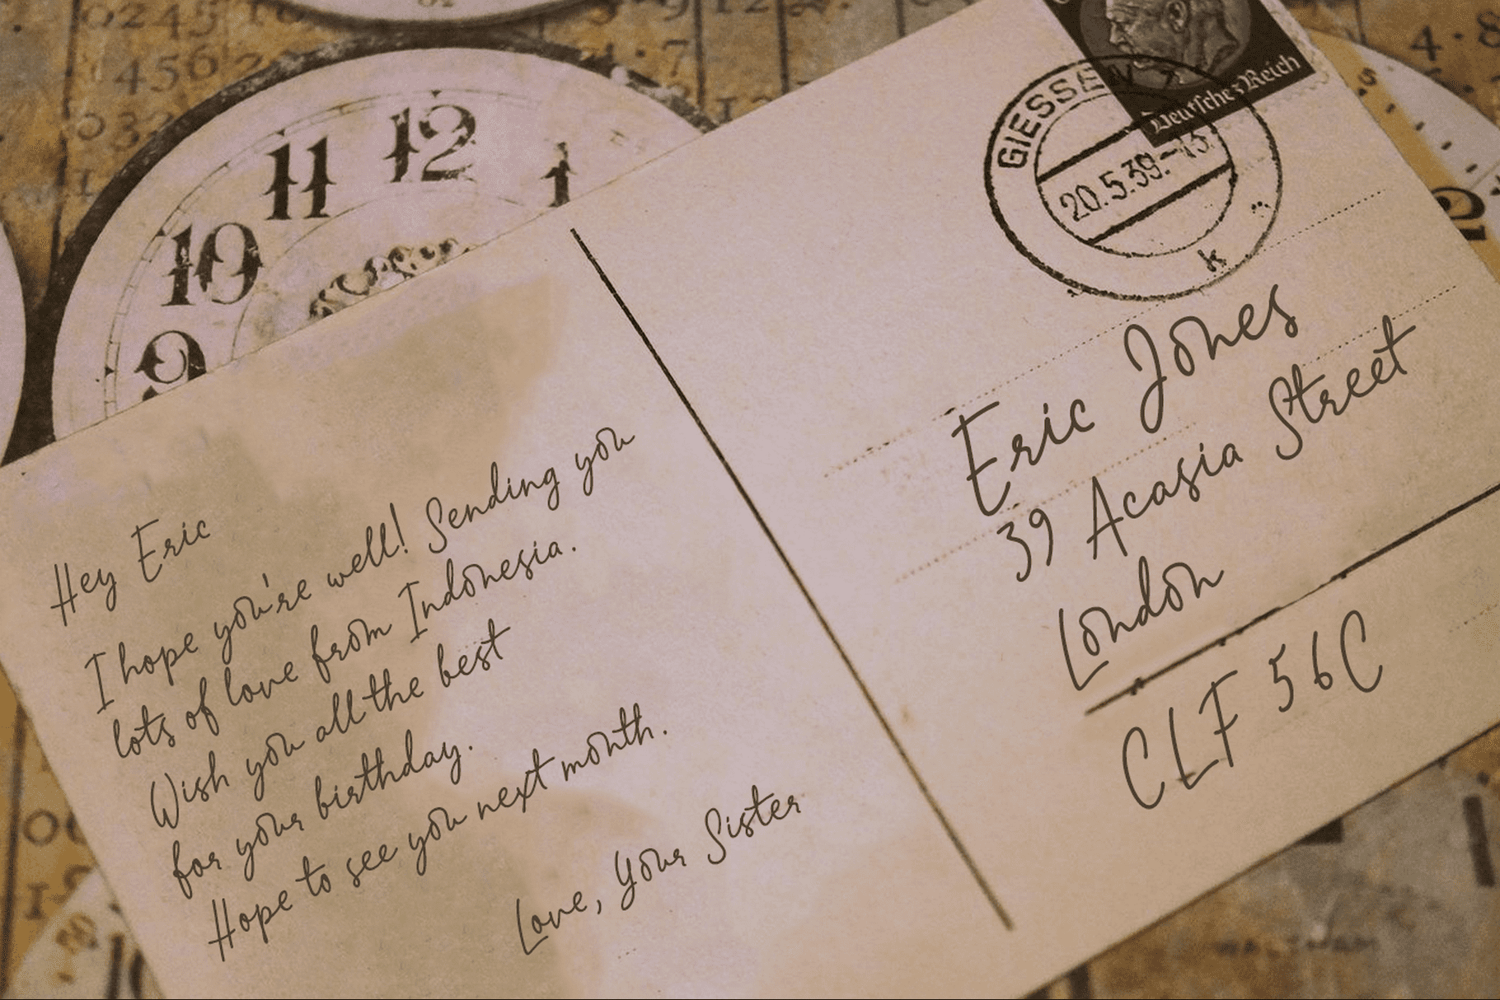 0245
456
11
12
1
10
9
4.8
2
Deutsches Reich
GIESSEN
20.5.39.-13
k
Hey Eric
I hope you're well! Sending you
lots of love from Indonesia.
Wish you all the best
for your birthday.
Hope to see you next month.
Love, Your Sister
Eric Jones
39 Acasia Street
London
CLF 56C
WALTHAM